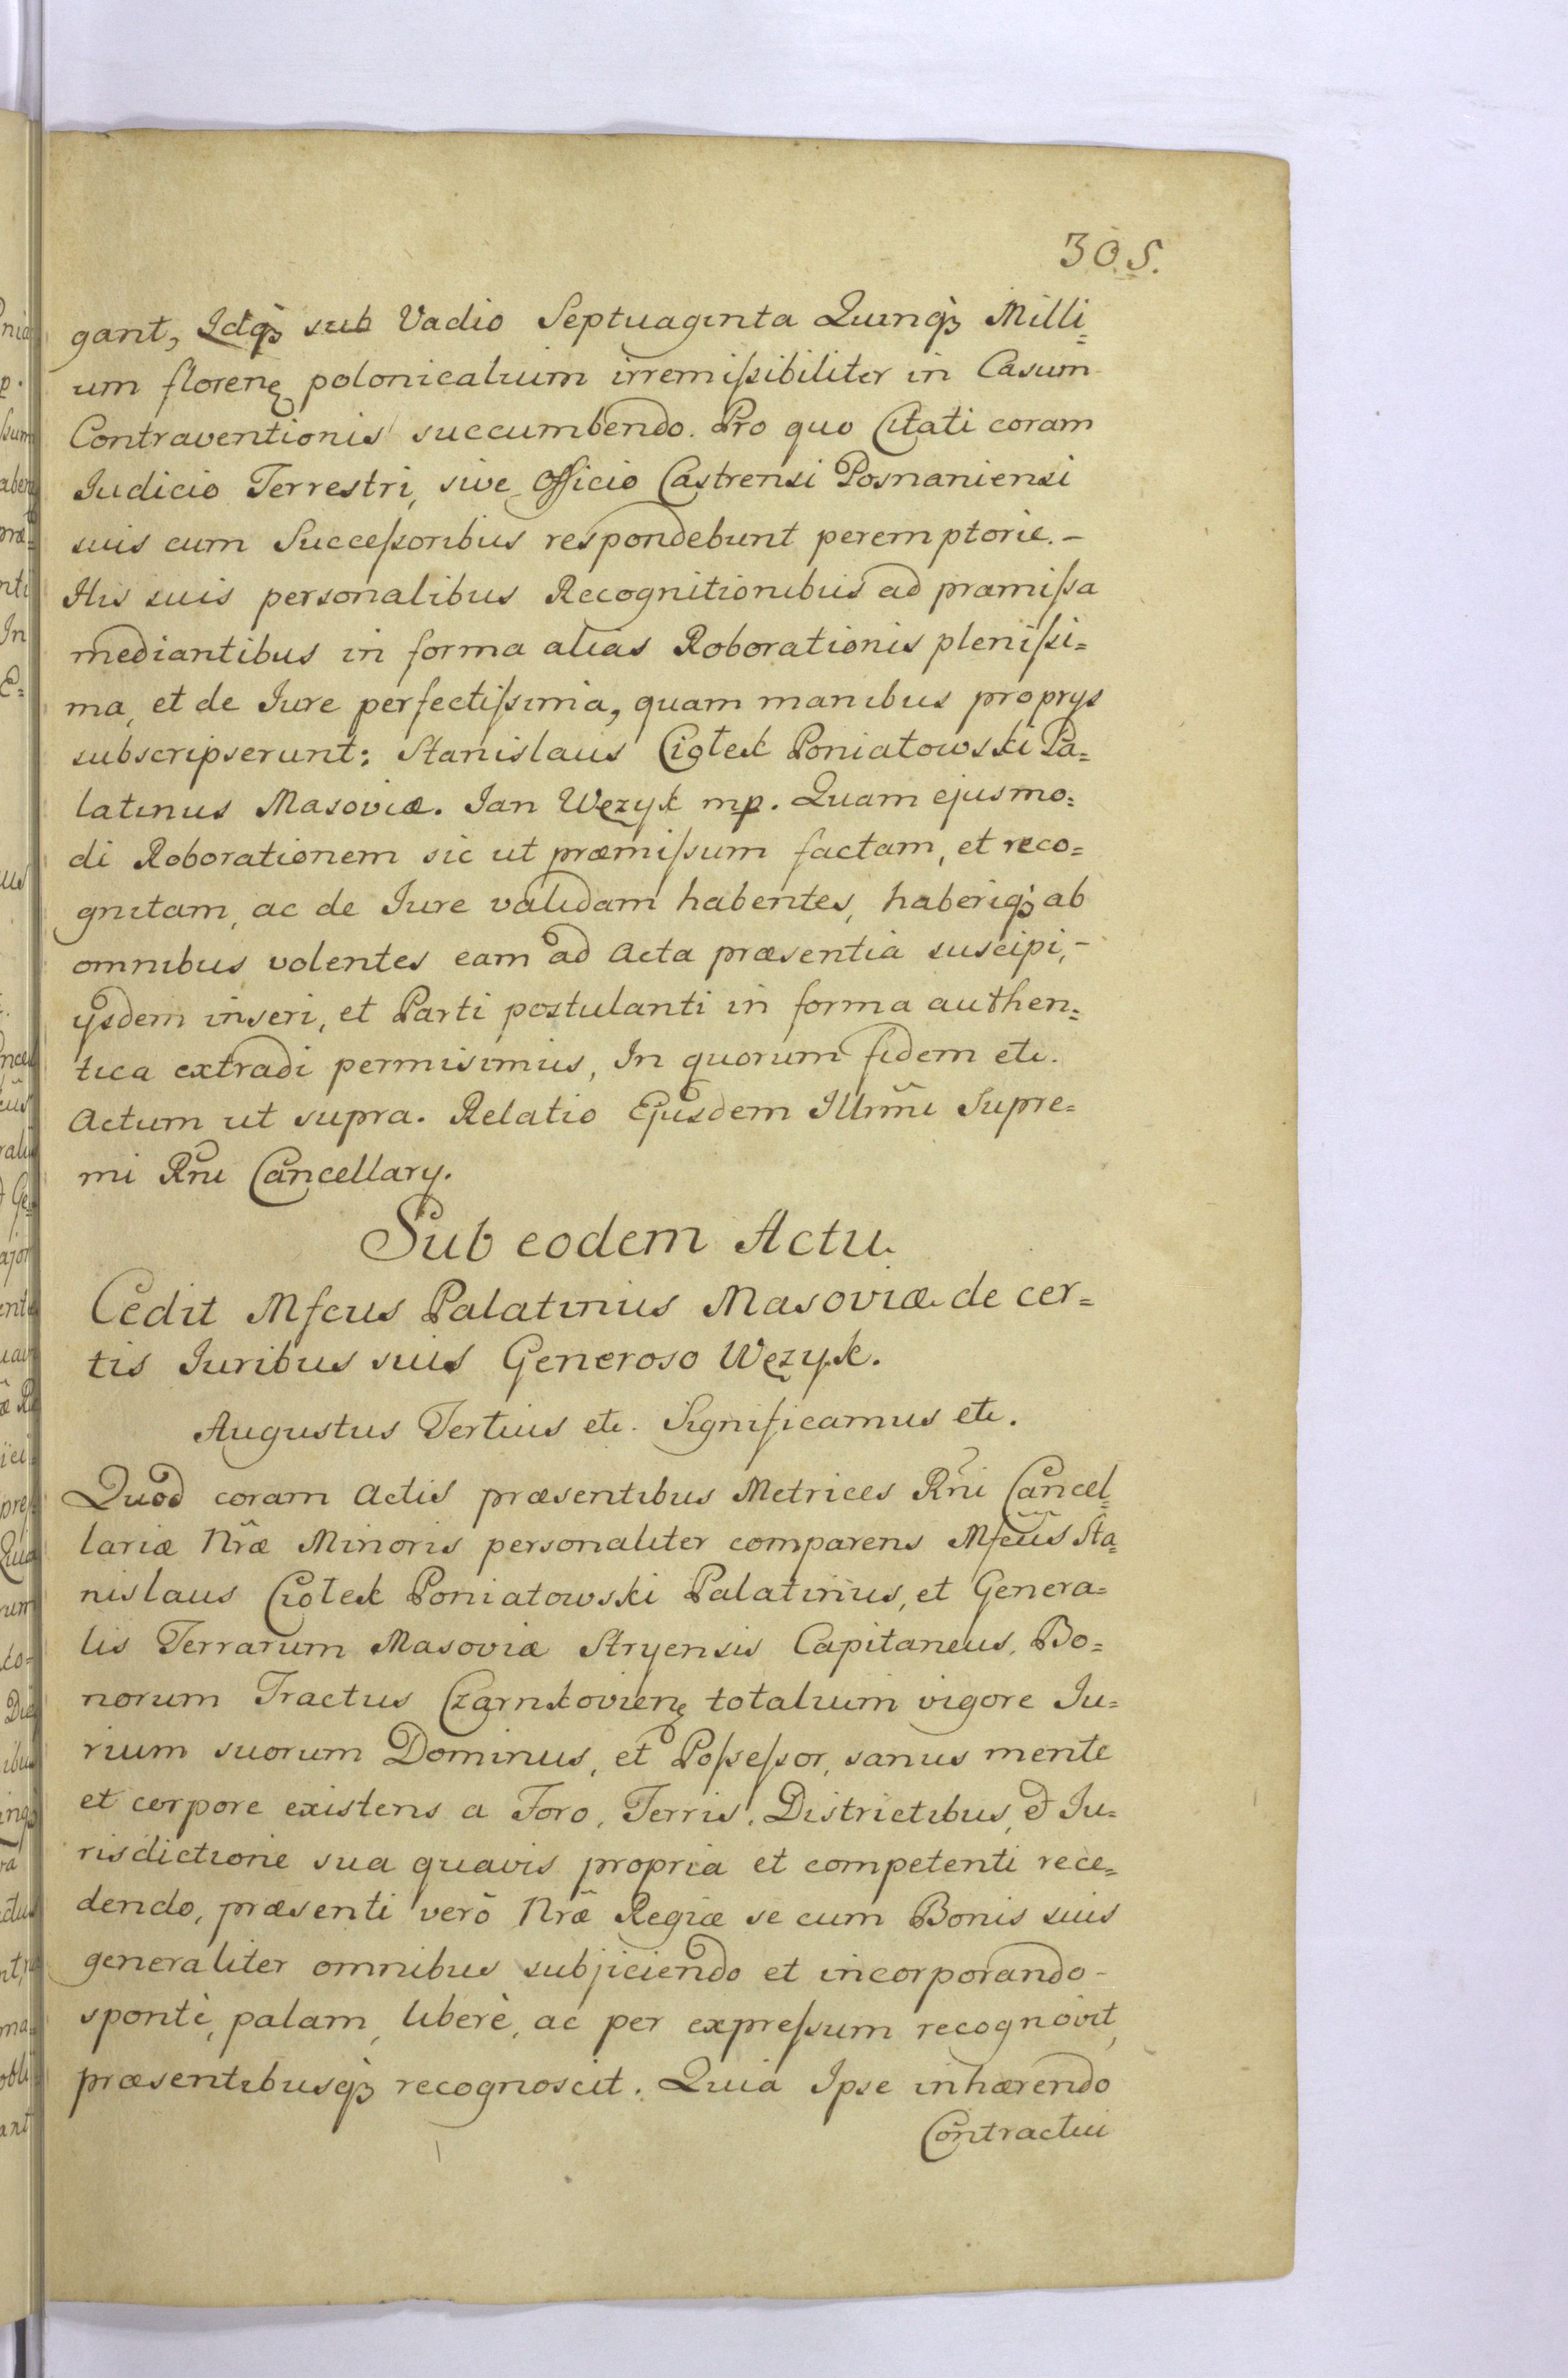 305.
gant, Idq̃ sub Vadio Septuaginta Quinq̃ Milli=
um florenę polonicalium irremiſsibiliter in Casum
Contraventionis succumbendo. Pro quo Citati coram
Iudicio Terrestri, sive Officio Castrensi Posnaniensi
suis cum Succeſsoribus respondebunt peremptorie. –
His suis personalibus Recognitionibus ad præmiſsa
mediantibus in forma alias Roborationis pleniſsi=
ma, et de Iure perfectiſsima, quam manibus proprys
subscripserunt: Stanislaus Ciołek Poniatowski Pa=
latinus Masoviæ. Ian Wężyk mp. Quam ejusmo=
di Roborationem sic ut præmiſsum factam, et reco=
gnitam, ac de Iure validam habentes, haberiq̃ ab
omnibus volentes eam ad Acta præsentia suscipi, –
ysdem inseri, et Parti postulanti in forma authen=
tica extradi permisimus, In quorum fidem etc.
Actum ut supra. Relatio Ejusdem Illrm̃i Supre=
mi Rñi Cancellary.
Sub eodem Actu.
Cedit Mfcus Palatinus Masoviæ de cer=
tis Iuribus suis Generoso Wężyk.
Augustus Tertius etc. Significamus etc.
Quod coram Actis præsentibus Metrices Rñi Cancel=
lariæ Nr̃æ Minoris personaliter comparens Mfc̃us Sta=
nislaus Ciołek Poniatowski Palatinus, et Genera=
lis Terrarum Masoviæ Stryensis Capitaneus, Bo=
norum Tractus Czarnkovienę totalium vigore Iu=
rium suorum Dominus, et Poſseſsor, sanus mente
et corpore existens a Foro, Terris, Districtibus, & Iu=
risdictione sua quavis propria et competenti rece=
dendo, præsenti verò Nr̃æ Regiæ se cum Bonis suis
generaliter omnibus subjiciendo et incorporando –
spontè, palam, liberè, ac per expreſsum recognovit,
præsentibusq̃ recognoscit. Quia Ipse inhærendo
Contractui